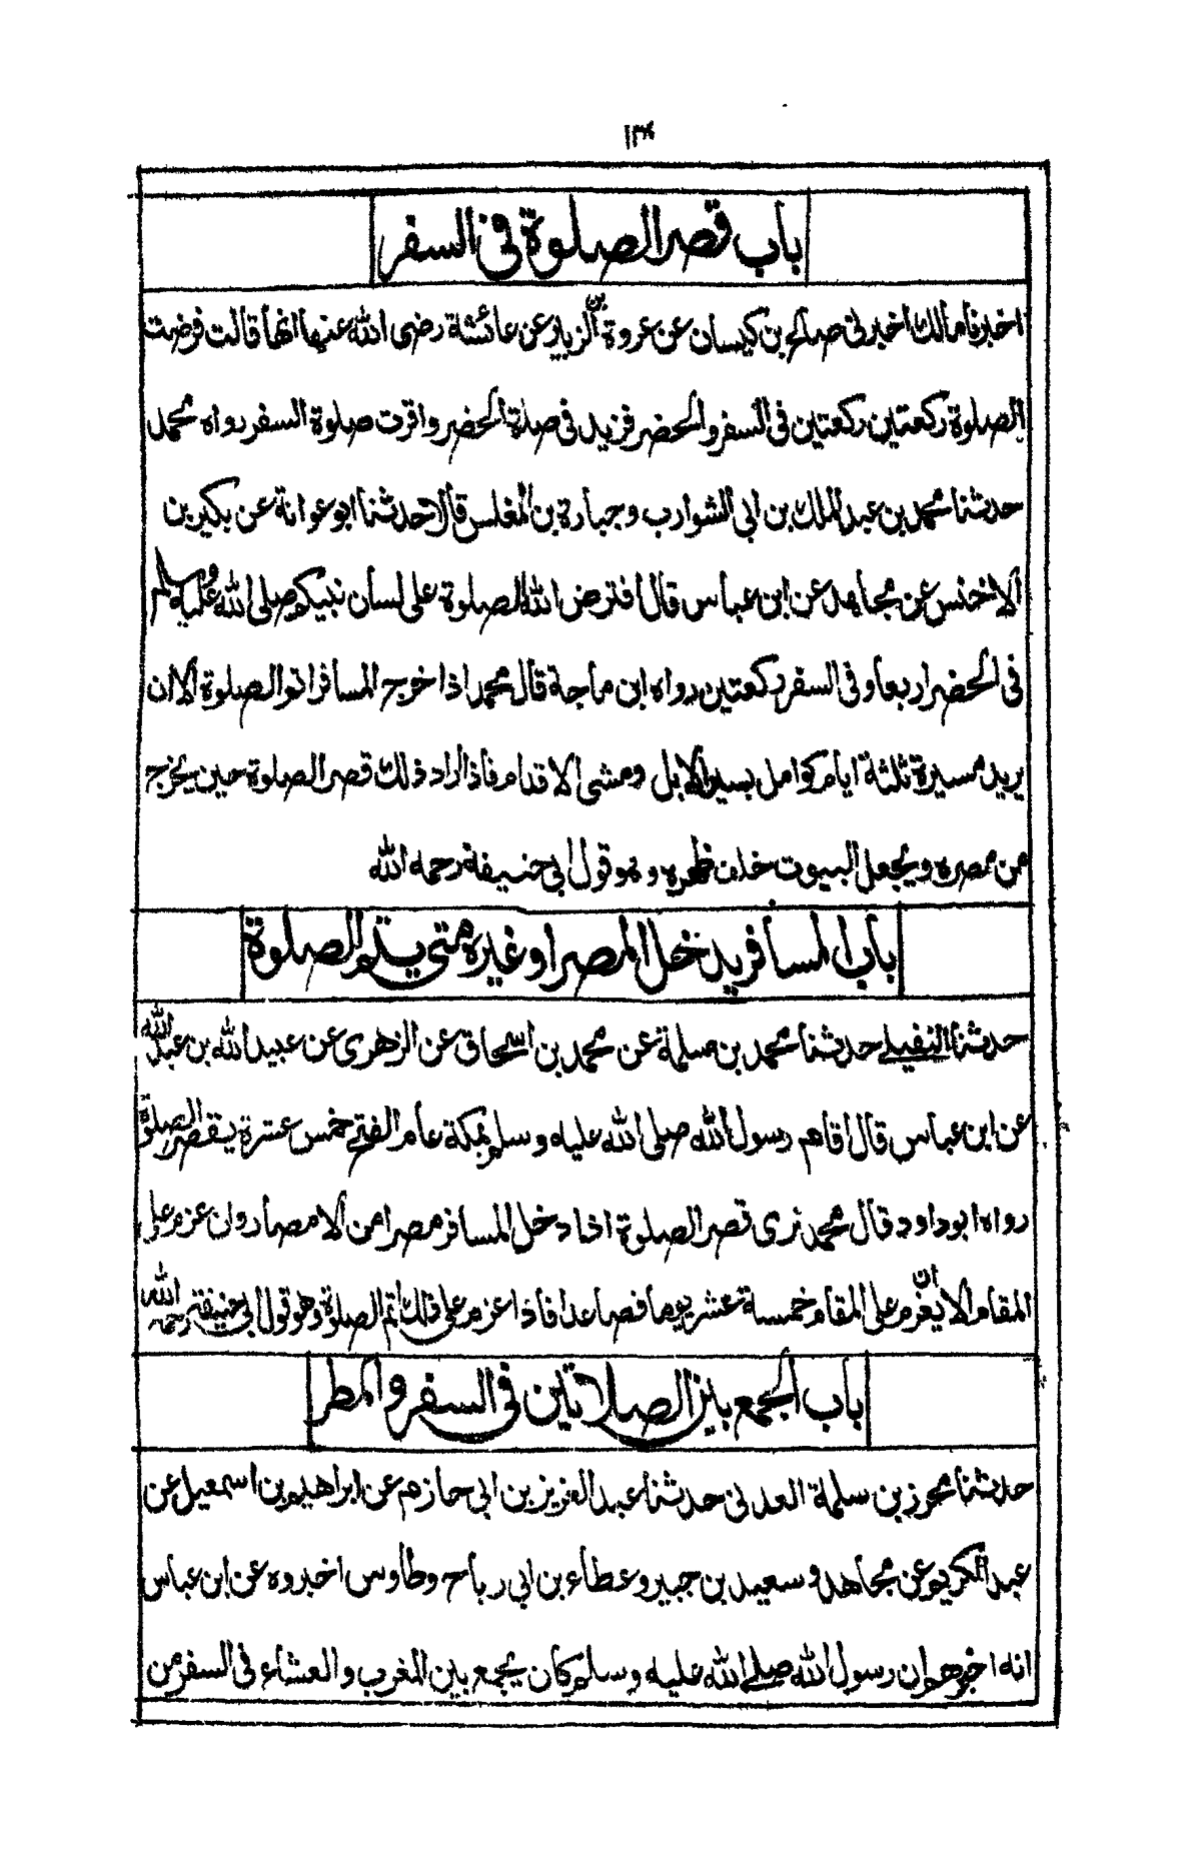 ١٣٤
باب قصر الصلوة فى السفر
اخبرنا مالك اخبرنى صالح بن كيسان عن عروة بن الزبير عن عائشة رضى الله عنها انها قالت فرضت
الصلوة ركعتين ركعتين فى السفر والحضر فزيد فى صلوة الحضر واقرت صلوة السفر رواه محمد
حدثنا محمد بن عبد الملك بن ابى الشوارب وجبارة بن المغلس قالا حدثنا ابو عوانة عن بكير بن
الاخنس عن مجاهد عن ابن عباس قال افترض الله الصلوة على لسان نبيكم صلى الله عليه وسلم
فى الحضر اربعا وفى السفر ركعتين رواه ابن ماجة قال محمد اذا خرج المسافر اتم الصلوة الا ان
يريد مسيرة ثلثة ايام كوامل بسير الابل ومشى الاقدام فاذا اراد ذلك قصر الصلوة حين يخرج
من مصره ويجعل البيوت خلف ظهره وهو قول ابى حنيفة رحمه الله
باب المسافر يدخل المصر او غيره متى يتم الصلوة
حدثنا النفيلے حدثنا محمد بن سلمة عن محمد بن اسحاق عن الزهرى عن عبيد الله بن عبد الله
عن ابن عباس قال اقام رسول الله صلى الله عليه وسلم بمكة عام الفتح خمس عشرة يقصر الصلوة
رواه ابو داود قال محمد نرى قصر الصلوة اذا دخل المسافر مصرا من الامصار وان عزم على
المقام الا ان يعزم على المقام خمسة عشر يوما فصاعدا فاذا عزم على ذلك اتم الصلوة وهو قول ابى حنيفة رحمه الله
باب الجمع بين الصلاتين فى السفر والمطر
حدثنا محرز بن سلمة العدنى حدثنا عبد العزيز بن ابى حازم عن ابراهيم بن اسمعيل عن
عبد الكريم عن مجاهد وسعيد بن جبير وعطاء بن ابى رباح وطاوس اخبروه عن ابن عباس
انه اخبرهم ان رسول الله صلے الله عليه وسلم كان يجمع بين المغرب والعشاء فى السفر من